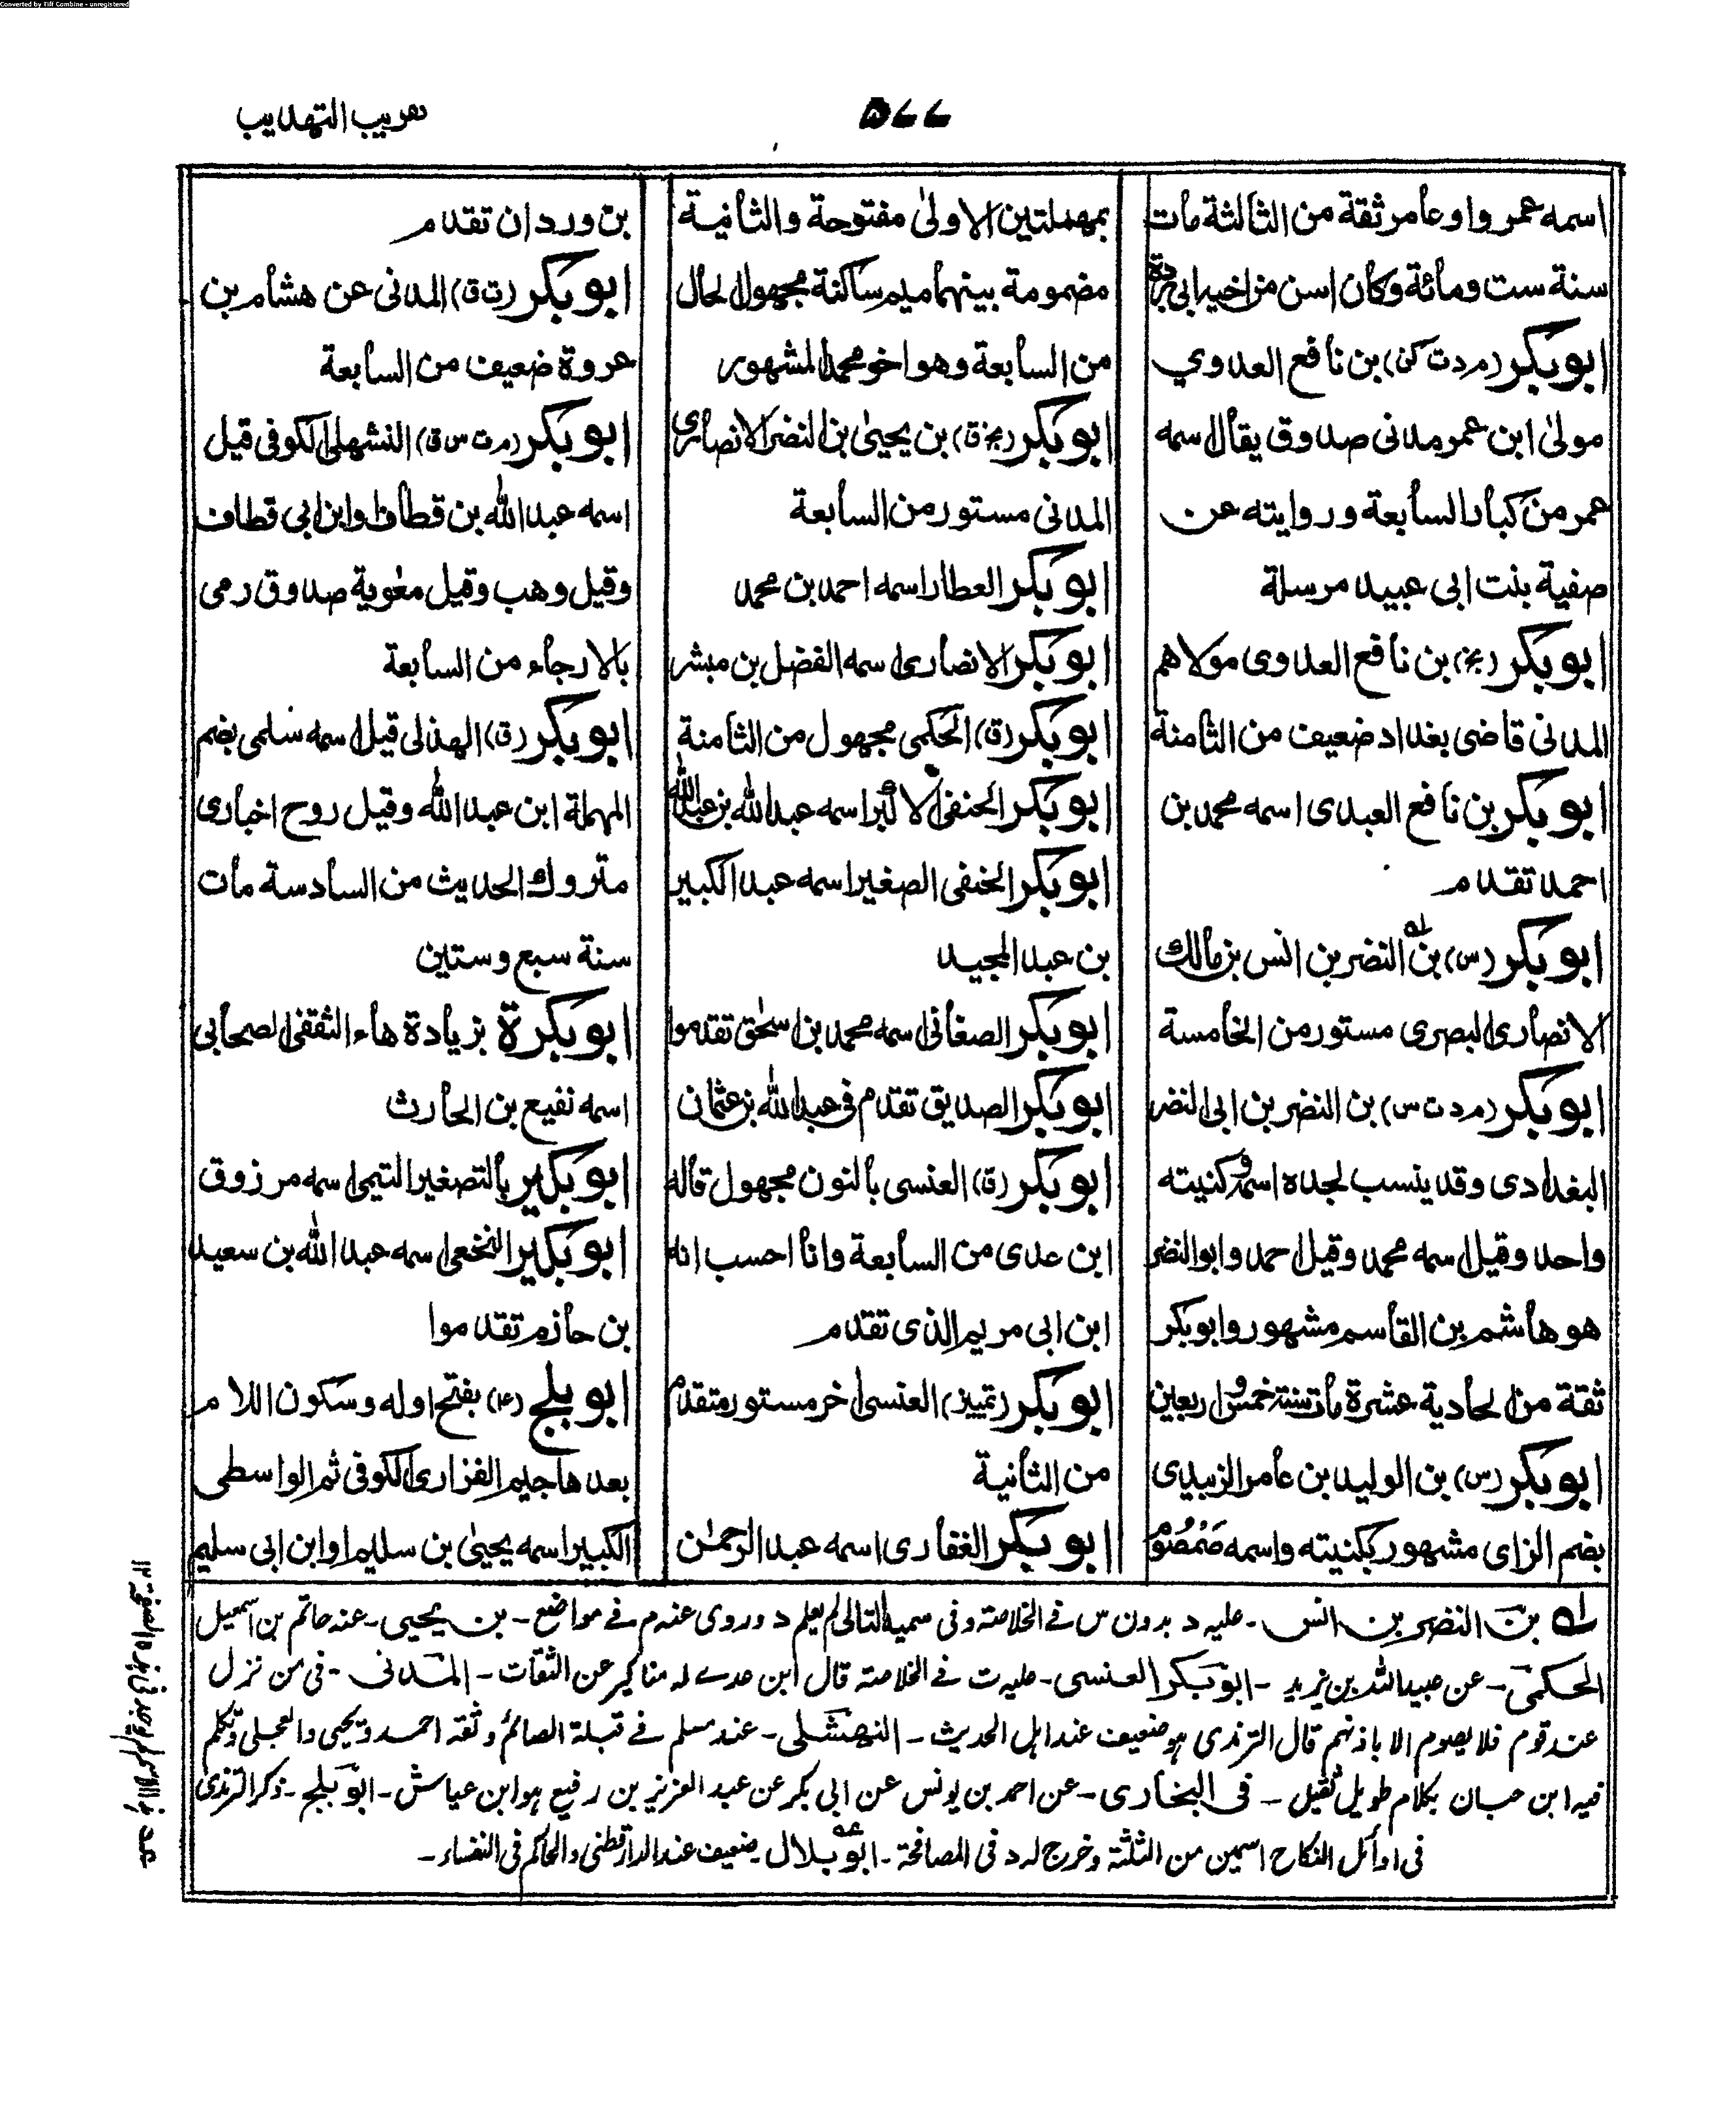 Converted by Tiff Combine - unregistered
۵۷۷
تقريب التهذيب
اسمه عمرو او عامر ثقة من الثالثة مات
سنة ست ومائة وكان اسن من اخيه ابي بردة
ابو بكر (م د ت كن) بن نافع العدوي
مولى ابن عمر مدنى صدوق يقال اسمه
عمر من كبار السابعة وروايته عن
صفية بنت ابى عبيد مرسلة
ابو بكر (بخ) بن نافع العدوى مولاهم
المدنى قاضى بغداد ضعيف من الثامنة
ابو بكر بن نافع العبدى اسمه محمد بن
احمد تقدم
ابو بكر (س) بن النضر بن انس بن مالك
الانصارى البصرى مستور من الخامسة
ابو بكر (م د ت س) بن النضر بن ابى النضر
البغدادى وقد ينسب لجده اسمه وكنيته
واحد وقيل اسمه محمد وقيل احمد وابو النضر
هو هاشم بن القاسم مشهور وابو بكر
ثقة من الحادية عشرة مات سنة خمس و اربعين
ابو بكر (س) بن الوليد بن عامر الزبيدى
بضم الزاى مشهور بكنيته واسمه صَمْصَوُم
بمهملتين الاولى مفتوحة والثانية
مضمومة بينهما ميم ساكنة مجهول الحال
من السابعة وهو اخو محمد المشهور
ابو بكر (بخ ق) بن يحيى بن النضر الانصارى
المدنى مستور من السابعة
ابو بكر العطار اسمه احمد بن محمد
ابو بكر الانصارى اسمه الفضل بن مبشر
ابو بكر (ق) الحكمى مجهول من الثامنة
ابو بكر الحنفى الاكبر اسمه عبد الله بن عبد الله
ابو بكر الحنفى الصغير اسمه عبد الكبير
بن عبد المجيد
ابو بكر الصغانى اسمه محمد بن اسحٰق تقدموا
ابو بكر الصديق تقدم فى عبد الله بن عثمان
ابو بكر (ق) العنسى بالنون مجهول قاله
ابن عدى من السابعة وانا احسب انه
ابن ابى مريم الذى تقدم
ابو بكر (تمييز) العنسى اخر مستور متقدم
من الثانية
ابو بكر الغفارى اسمه عبد الرحمٰن
بن وردان تقدم
ابو بكر (ت ق) المدنى عن هشام بن
عروة ضعيف من السابعة
ابو بكر (م ت س ق) النشهلى الكوفى قيل
اسمه عبد الله بن قطاف او ابن ابى قطاف
وقيل وهب وقيل معٰوية صدوق رمى
بالارجاء من السابعة
ابو بكر (ق) الهذلى قيل اسمه سلمى بضم
المهملة ابن عبد الله وقيل روح اخبارى
متروك الحديث من السادسة مات
سنة سبع وستين
ابو بكرة بزيادة هاء الثقفى الصحابى
اسمه نفيع بن الحارث
ابو بكير بالتصغير التيمى اسمه مرزوق
ابو بكير النخعى اسمه عبد الله بن سعيد
بن حازم تقدموا
ابو بلج (٤) بفتح اوله وسكون اللام
بعدها جيم الفزارى الكوفى ثم الواسطى
الكبير اسمه يحيىٰ بن سليم او ابن ابى سليم
له بن النضر بن انس - عليه د بدون س فے الخلاصة وفى سميه التالى لم يعلم د وروى عنه م فے مواضع - بن يحيى - عنه حاتم بن اسمعيل
الحكمى - عن عبيد الله بن يزيد - ابو بكر العنسى - عليه ت فے الخلاصة قال ابن عدے له مناكير عن الثقات - المدنى - فى من نزل
عند قوم فلا يصوم الا باذنهم قال الترمذى هو ضعيف عند اهل الحديث - النهشلى - عند مسلم فے قبلة الصائم وثقه احمد و يحيى والعجلى وتكلم
فيه ابن حبان بكلام طويل ثقيل - فى البخارى - عن احمد بن يونس عن ابى بكر عن عبد العزيز بن رفيع هو ابن عياش - ابو بلج - ذكر الترمذى
فى اوائل النكاح اسمين من الثلثة وخرج له د فى المصافحة - ابو بلال ضعيف عند الدارقطنى والحاكم فى النفساء -